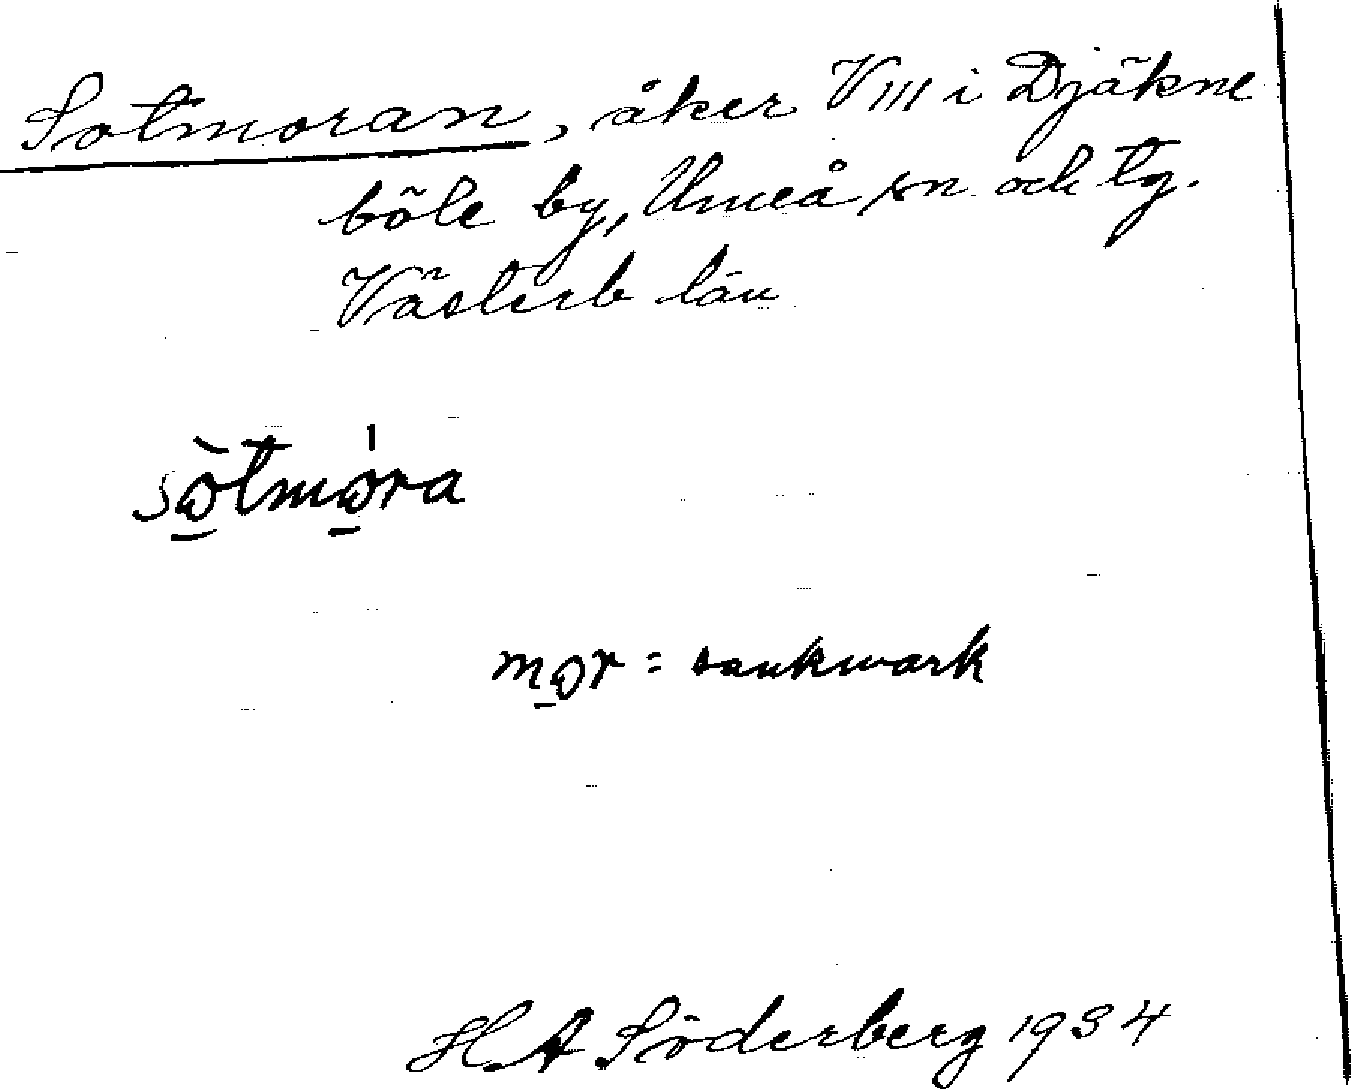 Sotmoran, åker VIII i Djäkne
böle by, Umeå sn och tg.
Västerb län
sò̱tmo̱ra
mo̱r = sankmark
H. A Söderberg 1934